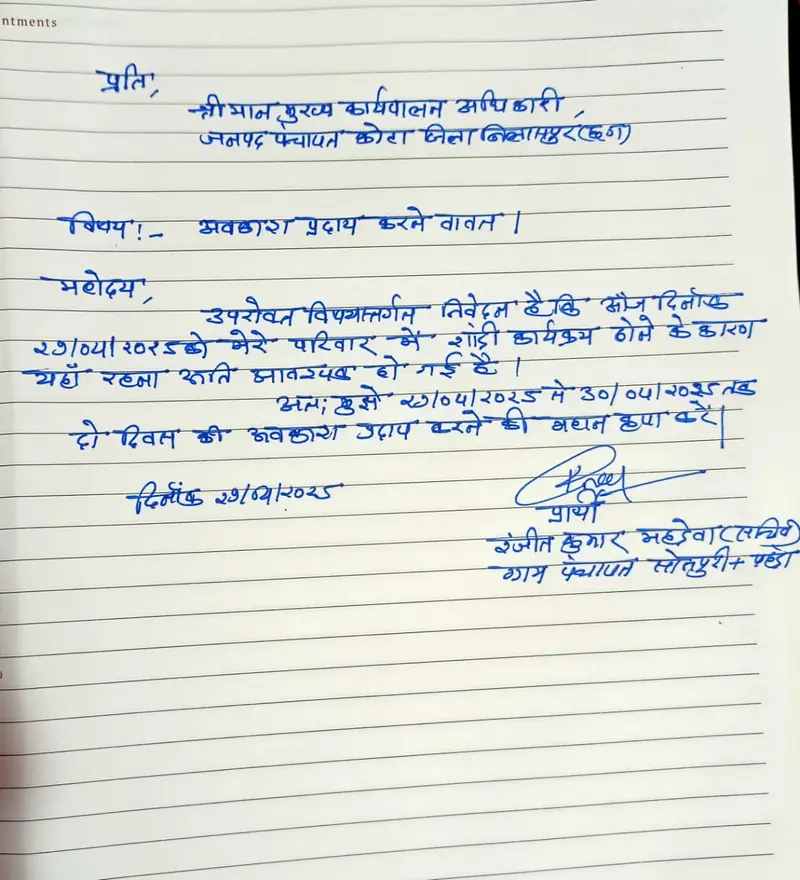 ntments
प्रति,
श्रीमान मुख्य कार्यपालन अधिकारी,
जनपद पंचायत कोटा जिला बिलासपुर (छ०ग०)
विषय!- अवकाश प्रदाय करने वावत ।
महोदय,
उपरोक्त विषयान्तर्गत निवेदन है कि आज दिनांक
२९/०४/२०२५ को मेरे परिवार में शादी कार्यक्रम होने के कारण
यहाँ रहना अति आवश्यक हो गई है ।
अतः मुझे २९/०४/२०२५ से ३०/०४/२०२५ तक
दो दिवस की अवकाश प्रदाय करने की कृपा करें|
दिनांक २९/०४/२०२५
प्रार्थी
रंजीत कुमार (सचिव)
ग्राम पंचायत सोनपुरी +